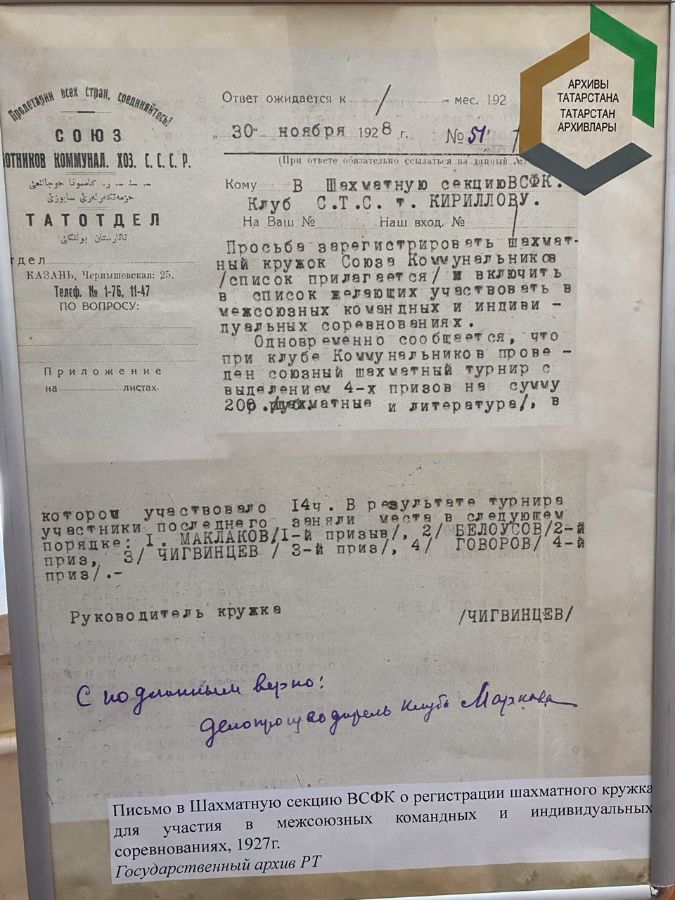 Пролетарии всех стран, соединяйтесь!
СОЮЗ
ОТНИКОВ КОММУНАЛ. ХОЗ. С.С.С.Р.
ТАТОТДЕЛ
тдел
КАЗАНЬ, Чернышевская: 25.
Телеф. № 1-76, 11-47
ПО ВОПРОСУ:
Приложение
на листах.
Ответ ожидается к мес. 192
„ 30- ноября 1928 г. № 51
(При ответе обязательно ссылаться на данный №
Кому В Шахматную секциюВСФК.
Клуб С.Т.С. т. КИРИЛЛОВУ.
На Ваш № Наш вход. №
Просьба зарегистрировать шахмат-
ный кружок Союза Коммунальников
/список прилагается/ и включить
в список желающих участвовать в
межсоюзных командных и индиви -
дуальных соревнованиях.
Одновременно сообщается, что
при клубе Коммунальников прове -
ден союзный шахматный турнир с
выделением 4-х призов на сумму
200 /шахматные и литература/, в
котором участвовало 14ч. В результате турнира
участники последнего заняли места в следующем
порядке: I. МАКЛАКОВ/I-й призыв/, 2/ БЕЛОУСОВ/2-й
приз, 3/ ЧИГВИНЦЕВ / 3-й приз/, 4/ ГОВОРОВ/ 4-й
приз/.-
Руководитель кружка /ЧИГВИНЦЕВ/
С подлинным верно:
Делопроизводитель клуба
АРХИВЫ
ТАТАРСТАНА
ТАТАРСТАН
АРХИВЛАРЫ
Письмо в Шахматную секцию ВСФК о регистрации шахматного кружка
для участия в межсоюзных командных и индивидуальных
соревнованиях, 1927г.
Государственный архив РТ